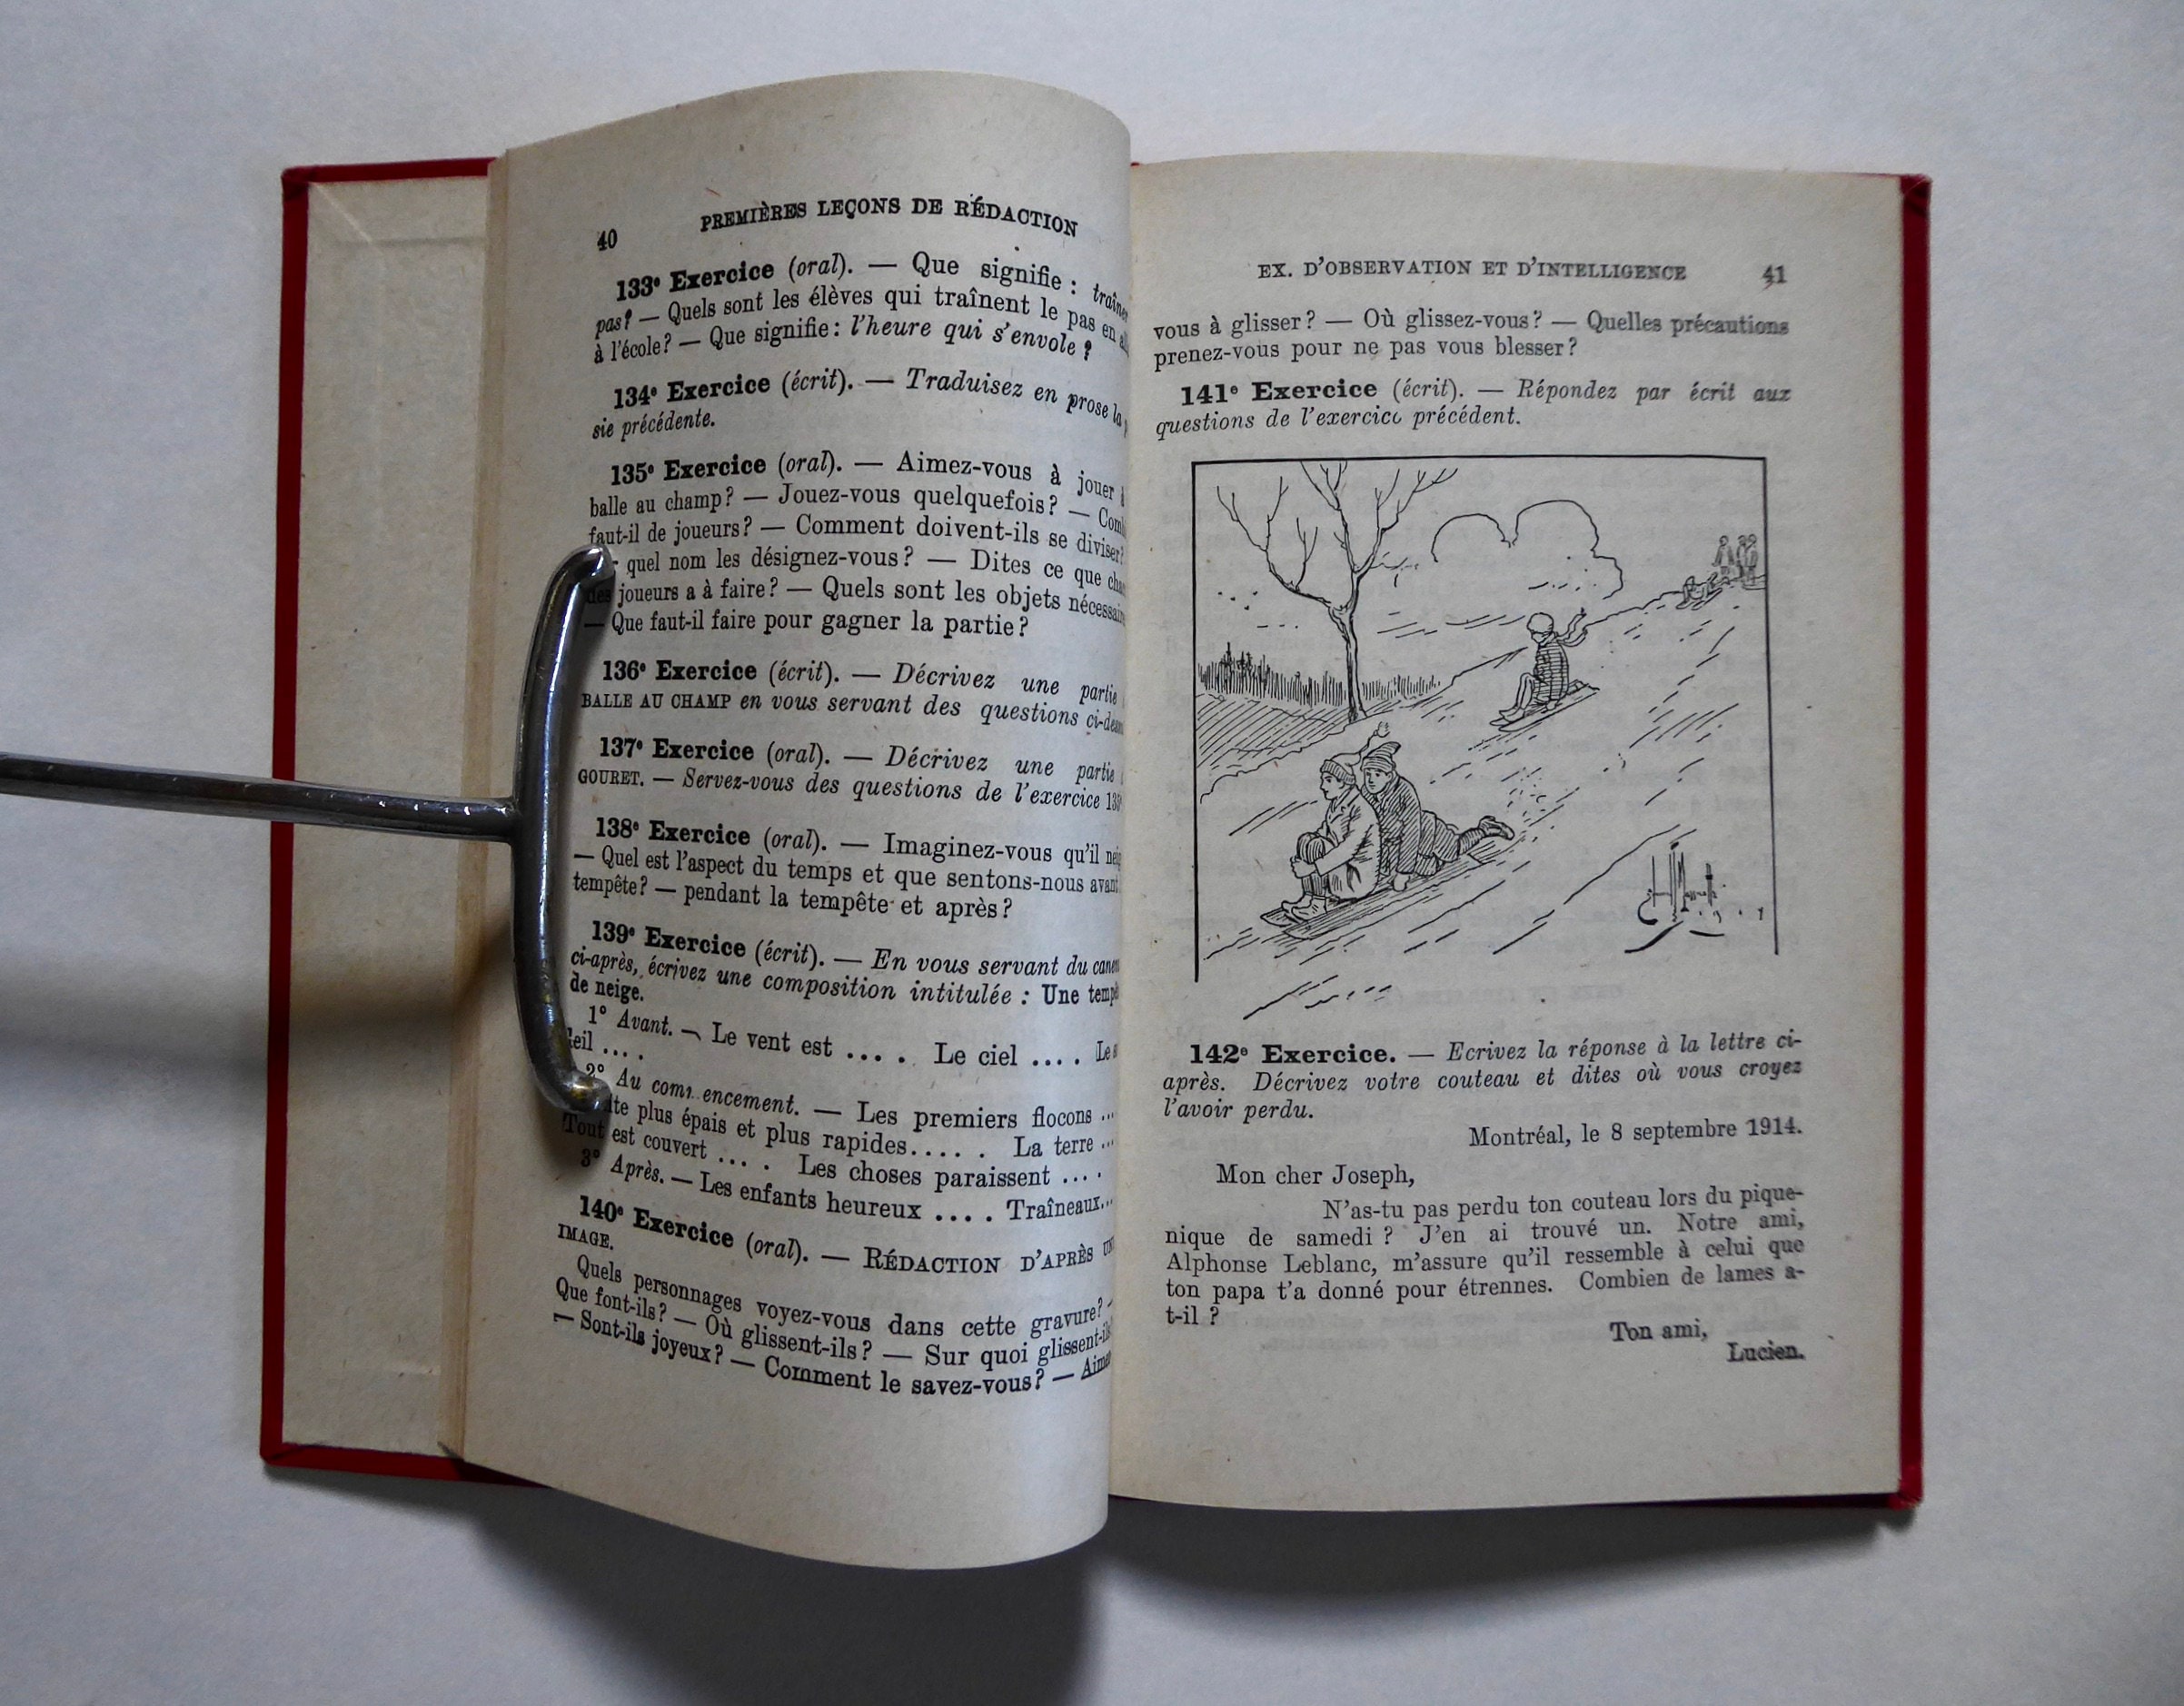 40 PREMIÈRES LEÇONS DE RÉDACTION
133e Exercice (oral). — Que signifie :
pas? — Quels sont les élèves qui traînent le pas en
à l'école? — Que signifie : l'heure qui s'envole ?
134e Exercice (écrit). — Traduisez en prose la
sie précédente.
135e Exercice (oral). — Aimez-vous à jouer
balle au champ? — Jouez-vous quelquefois? —
faut-il de joueurs? — Comment doivent-ils se diviser?
quel nom les désignez-vous? — Dites ce que
des joueurs a à faire? — Quels sont les objets
— Que faut-il faire pour gagner la partie?
136e Exercice (écrit). — Décrivez une partie
BALLE AU CHAMP en vous servant des questions
137e Exercice (oral). — Décrivez une partie
GOURET. — Servez-vous des questions de l'exercice
138e Exercice (oral). — Imaginez-vous qu'il
— Quel est l'aspect du temps et que sentons-nous avant
tempête? — pendant la tempête et après?
139e Exercice (écrit). — En vous servant du
ci-après, écrivez une composition intitulée : Une
de neige.
1° Avant. — Le vent est .... Le ciel .... Le
leil ....
2° Au commencement. — Les premiers flocons ...
plus épais et plus rapides..... La terre ...
Tout est couvert .... Les choses paraissent ....
3° Après. — Les enfants heureux .... Traîneaux...
140e Exercice (oral). — RÉDACTION D'APRÈS
IMAGE.
Quels personnages voyez-vous dans cette gravure? —
Que font-ils? — Où glissent-ils? — Sur quoi
— Sont-ils joyeux? — Comment le savez-vous? —
EX. D'OBSERVATION ET D'INTELLIGENCE 41
vous à glisser? — Où glissez-vous? — Quelles précautions
prenez-vous pour ne pas vous blesser?
141e Exercice (écrit). — Répondez par écrit aux
questions de l'exercice précédent.
142e Exercice. — Ecrivez la réponse à la lettre ci-
après. Décrivez votre couteau et dites où vous croyez
l'avoir perdu.
Montréal, le 8 septembre 1914.
Mon cher Joseph,
N'as-tu pas perdu ton couteau lors du pique-
nique de samedi ? J'en ai trouvé un. Notre ami,
Alphonse Leblanc, m'assure qu'il ressemble à celui que
ton papa t'a donné pour étrennes. Combien de lames a-
t-il ?
Ton ami,
Lucien.